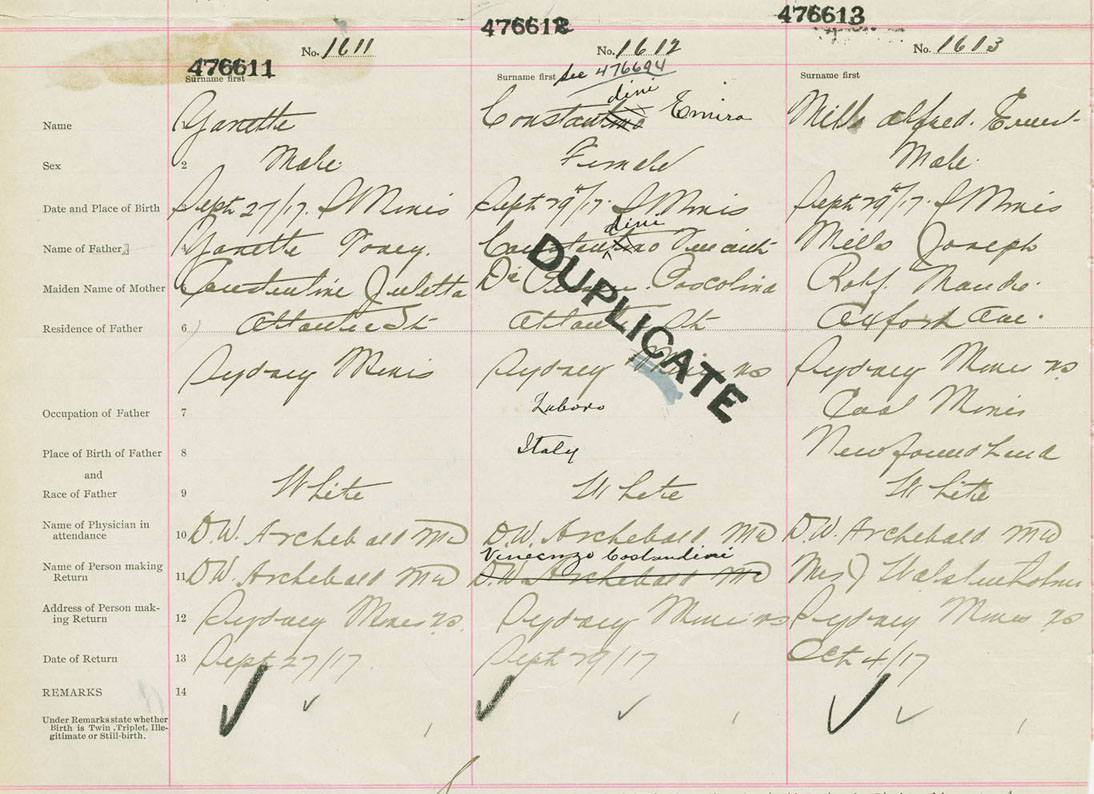 476611 476612 476613
No. 1611 No. 1612 No. 1613
See 476694
Surname first Surname first Surname first
dini
Name 1 Ganette Constantino Emira Mills Alfred Ernest
Sex 2 Male Female Male
Date and Place of Birth 3 Sept 27/17. S Mines Sept 29/17. S Mines Sept 29/17. S Mines
dini
Name of Father 4 Ganette Toney. Constantino Mills Joseph
Maiden Name of Mother 5 Constentine Juletta De Pascolina Maude.
Residence of Father 6 Atlantic St Atlantic St Oxford Ave.
Sydney Mines Sydney Mines NS Sydney Mines NS
Occupation of Father 7 Labors Coal Miner
Place of Birth of Father 8 Italy Newfoundland
and
Race of Father 9 White White White
Name of Physician in
attendance 10 D.W. Archebald MD D.W. Archebald MD D.W. Archebald MD
Vincenzo Costandini
Name of Person making
Return 11 D.W. Archebald MD D.W. Archebald MD Mrs J
Address of Person mak-
ing Return 12 Sydney Mines N.S. Sydney Mines NS Sydney Mines NS
Date of Return 13 Sept 27/17. Sept 29/17 Oct 4/17
REMARKS 14
Under Remarks state whether
Birth is Twin, Triplet, Ille-
gitimate or Still-birth.
DUPLICATE